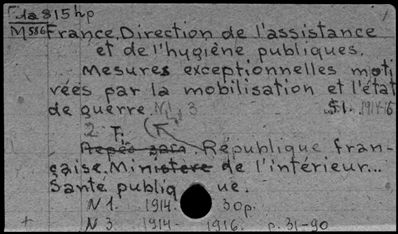 1a815hp
M586 France. Direction de l'assistance
et de l'hygiène publiques.
Mesures exceptionnelles moti
vées par la mobilisation et l'état
de guerre N1, 3 $1. 1914-16
2 F.
République fran-
çaise. Ministere de l'intérieur...
Santé publiq ue.
N 1. 1914 30p.
N 3 1914- 1916. p. 31-90